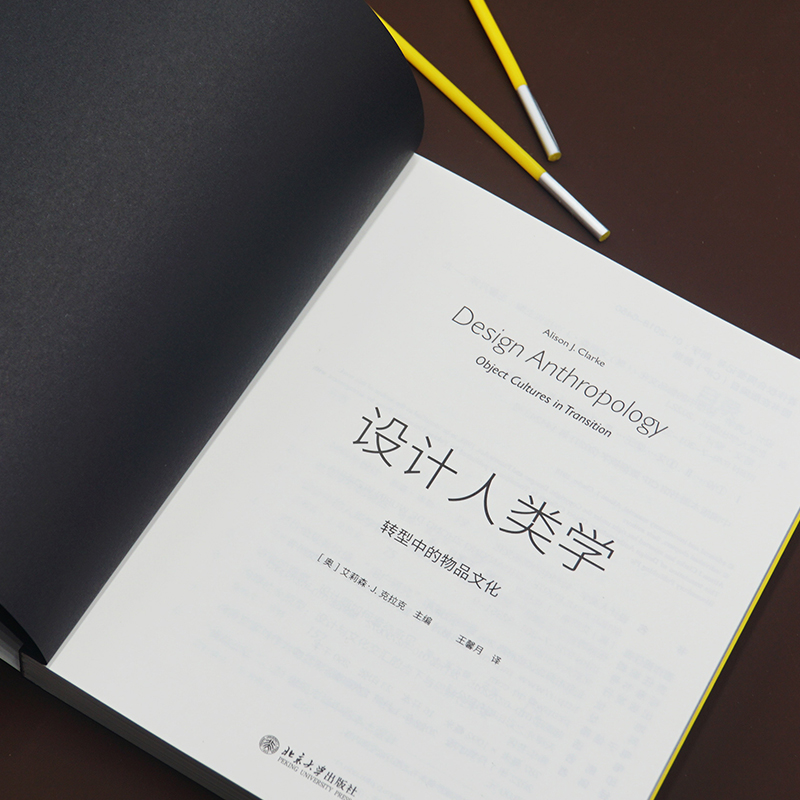 Alison J. Clarke
Design Anthropology
Object Cultures in Transition
设计人类学
转型中的物品文化
[奥] 艾莉森·J. 克拉克 主编 王馨月 译
北京大学出版社
PEKING UNIVERSITY PRESS